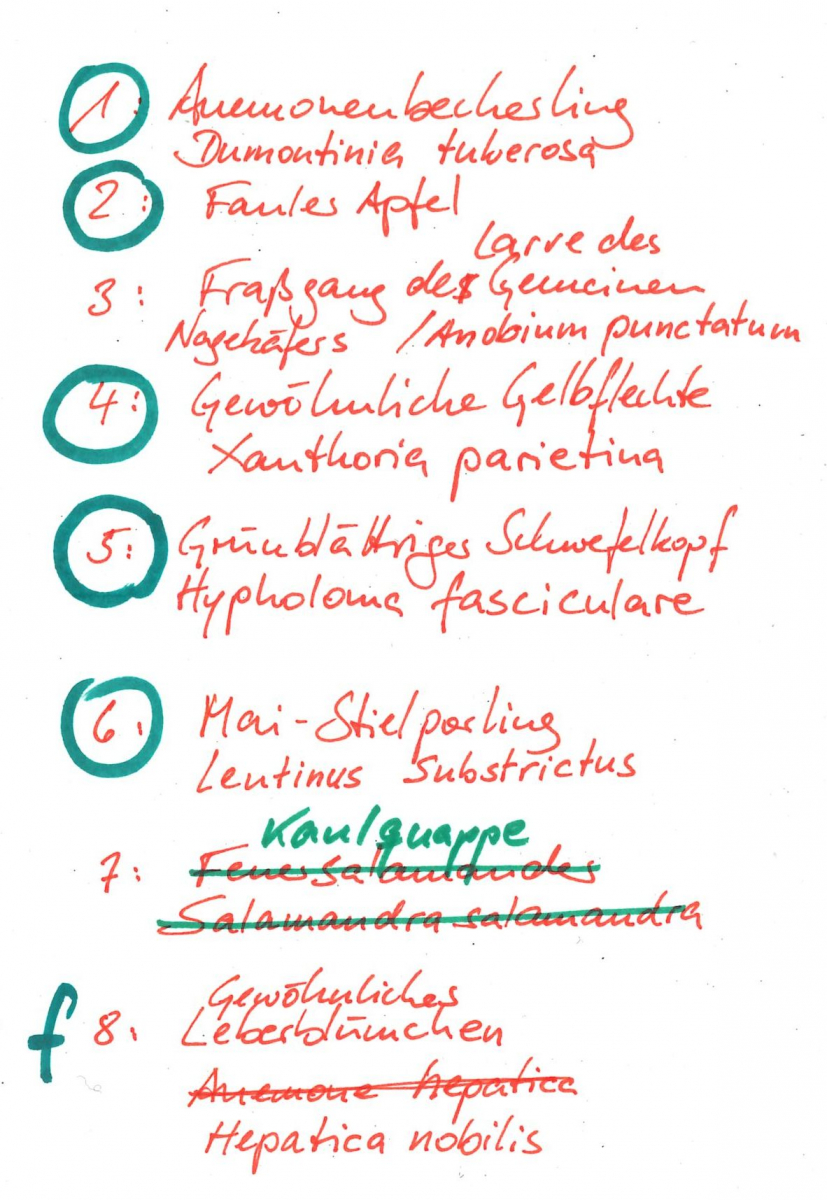 1: Anemonenbecherling
Dumontinia tuberosa
2: Fauler Apfel
Larve des
3: Fraßgang des Gemeinen
Nagekäfers / Anobium punctatum
4: Gewöhnliche Gelbflechte
Xanthoria parietina
5: Grünblättriger Schwefelkopf
Hypholoma fasciculare
6: Mai-Stielporling
Lentinus substrictus
Kaulquappe
7: Feuersalamander
Salamandra salamandra
Gewöhnliches
f 8: Leberblümchen
Anemone hepatica
Hepatica nobilis